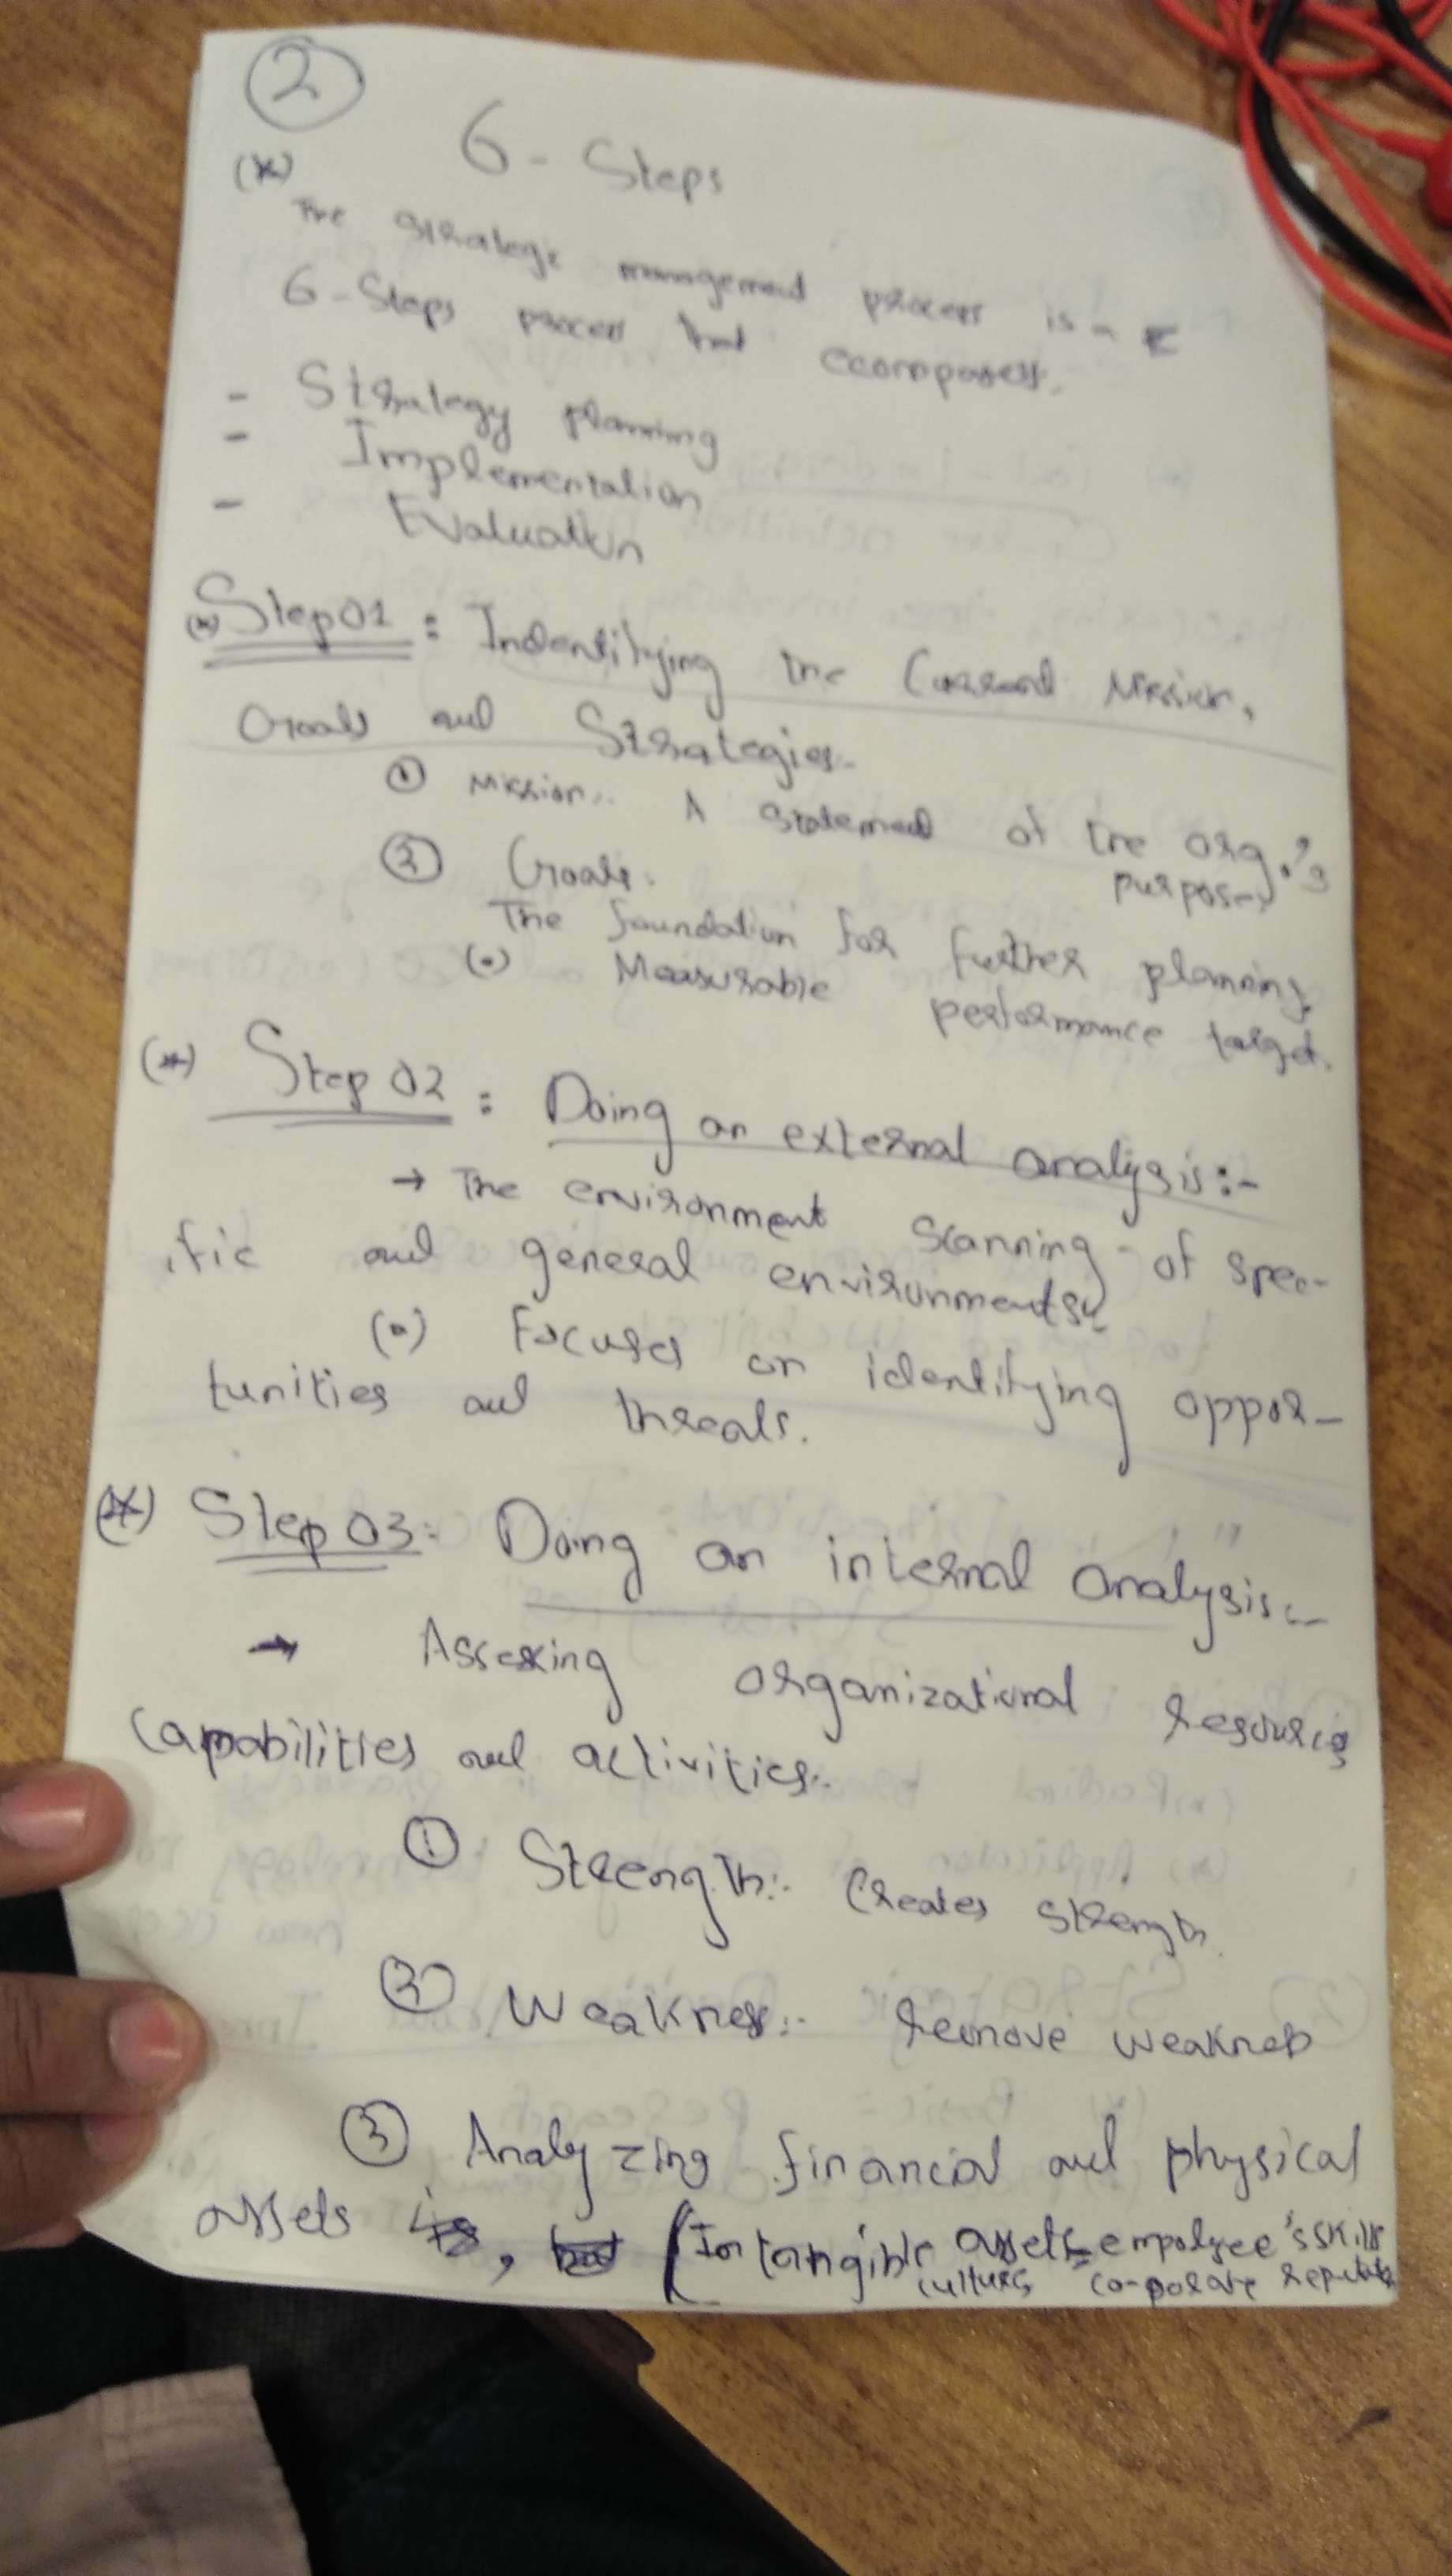 2
6 - Steps
(*)
The strategic management process is a
6 - Steps process that
- Strategy planning
- Implementation
- Evaluation
(*) Step 01 : Indentifying the Current Mission,
Goals and Strategies.
① Mission:. A statement of the org.'s
purpose,
② Goals.
The foundation for further planning,
(•) Measurable performance target.
(*) Step 02 : Doing an external analysis :-
→ The environment scanning of spec-
ific and general environments
(•) Focuses on identifying oppor-
tunities and threats.
(*) Step 03 : Doing an internal analysis:-
→ Assessing organizational resources
capabilities and activities:.
① Strength:. Creates strength
② Weakness:. remove weakness
③ Analyzing financial and physical
assets , (Intangible assets = empolyee's skills
culture, co-porate